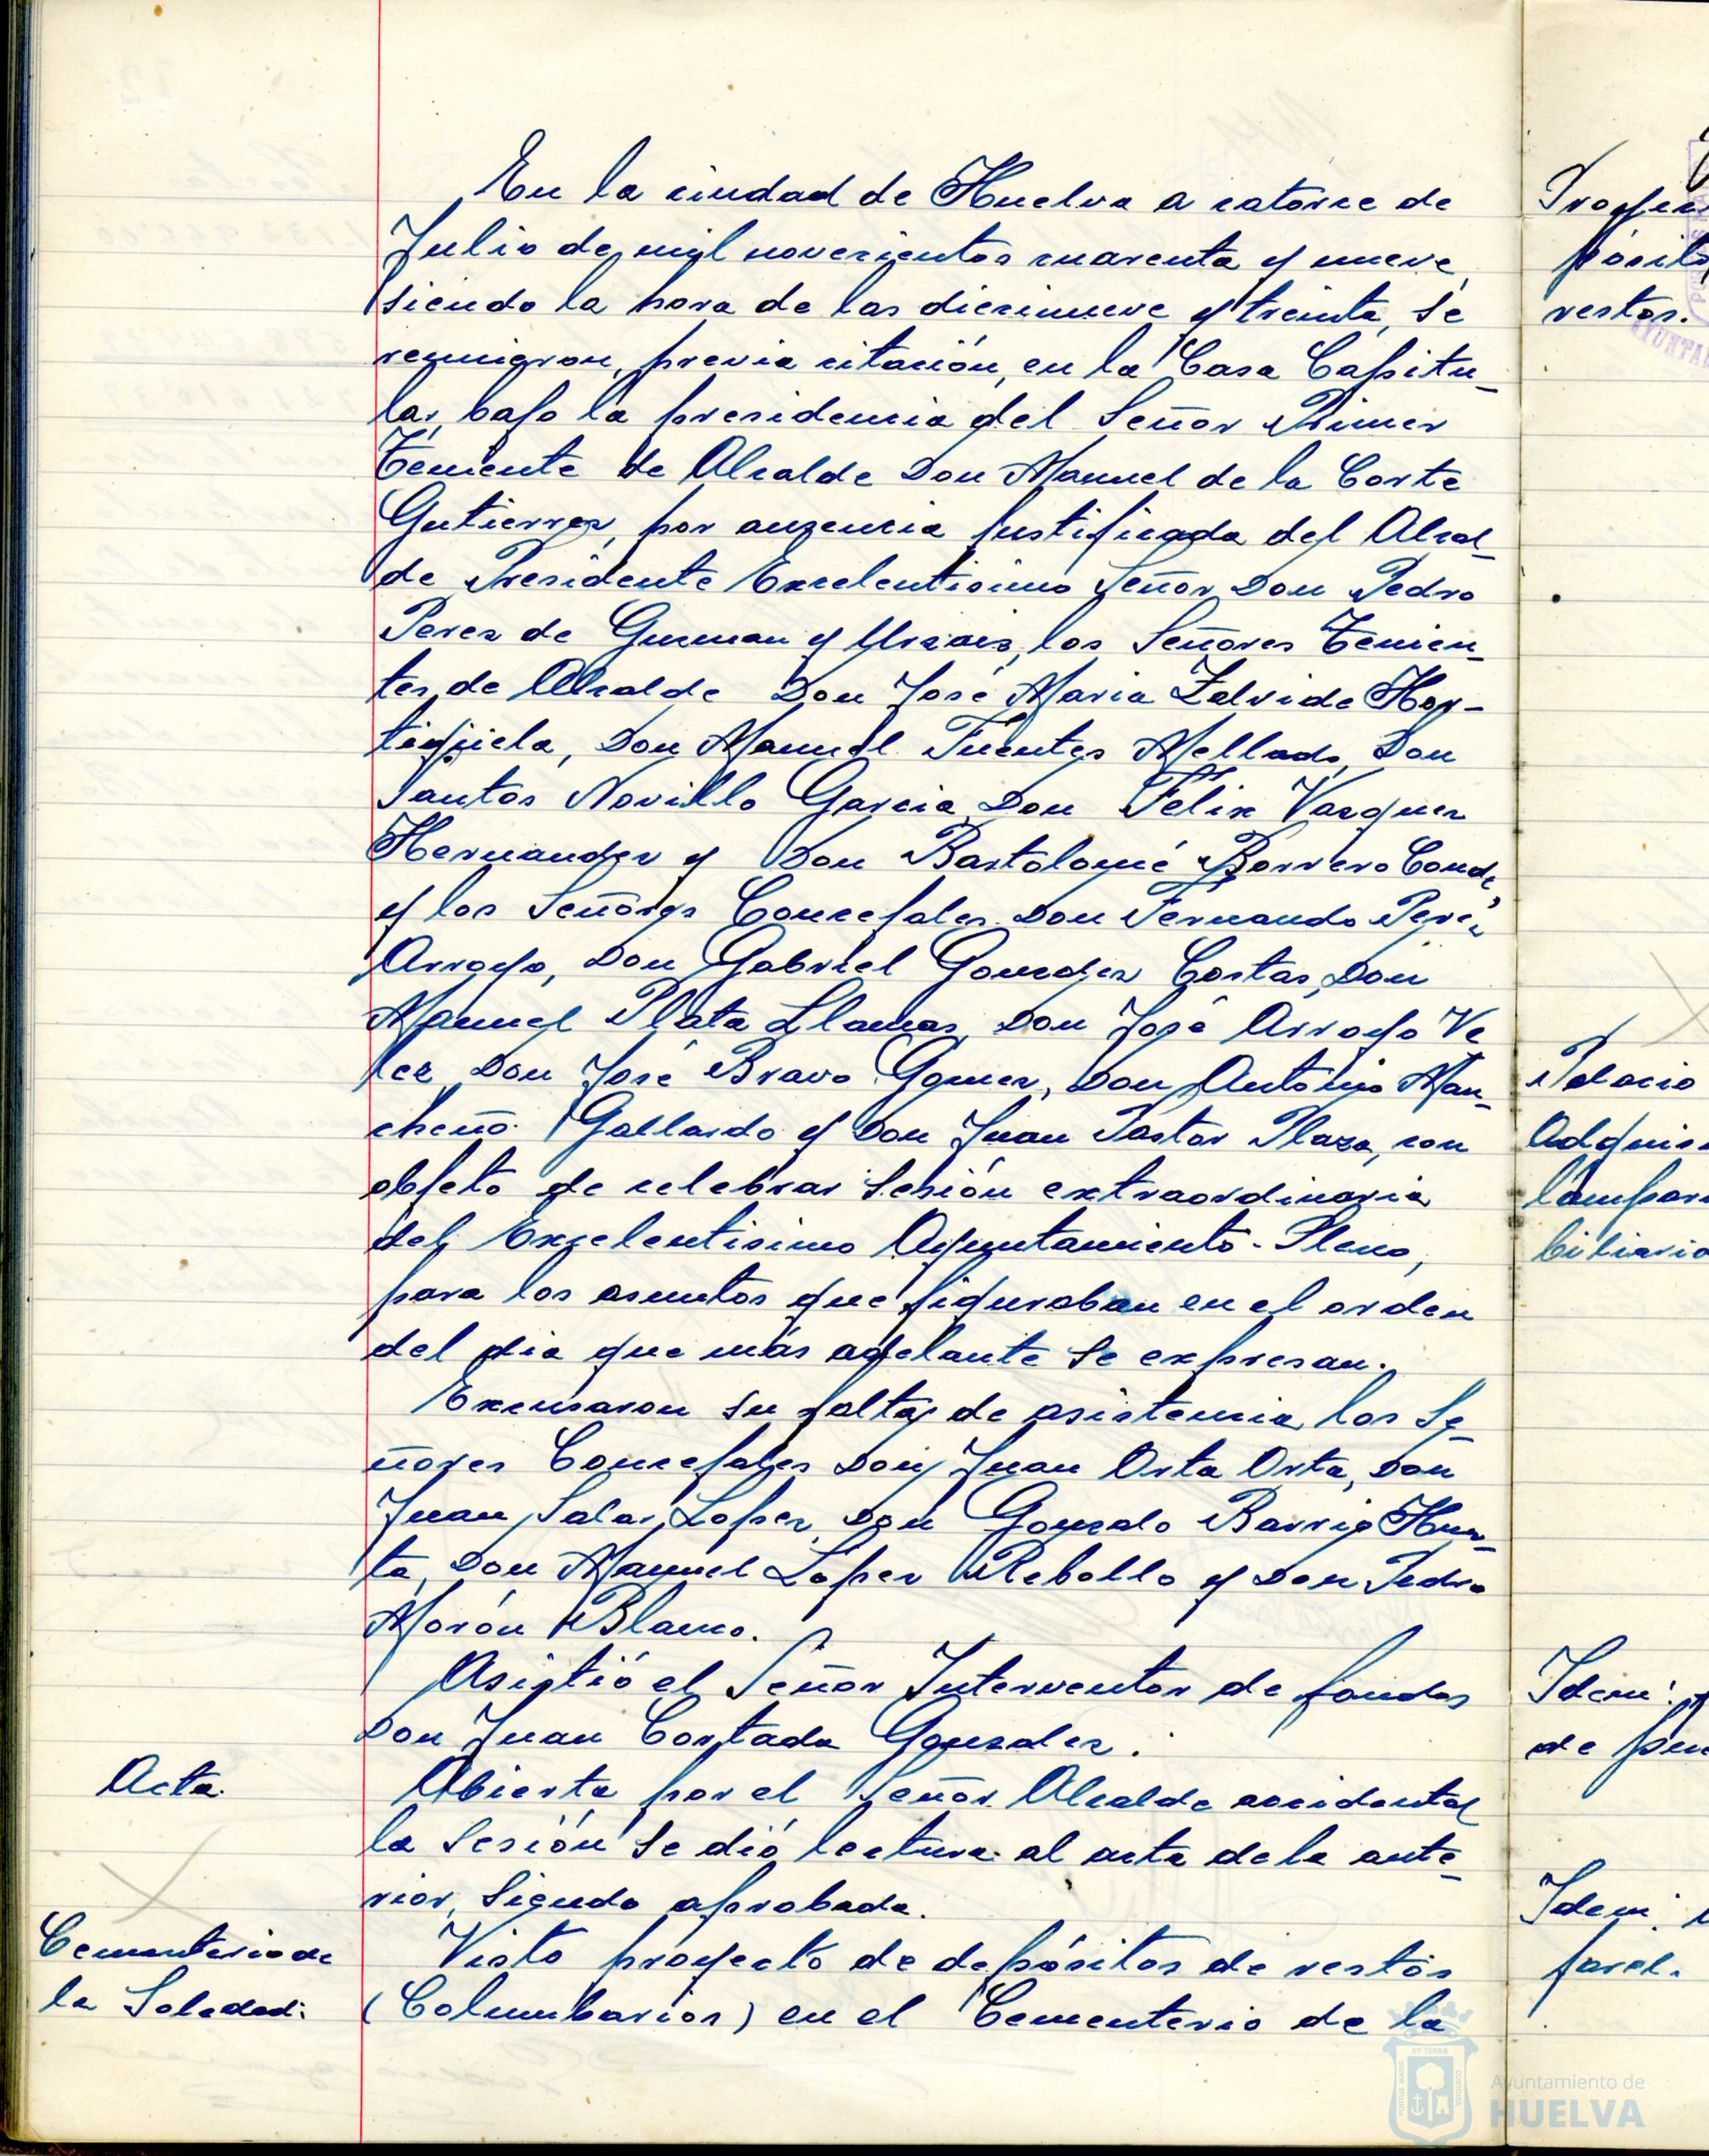 En la ciudad de Huelva a catorce de
Julio de mil novecientos cuarenta y nueve,
siendo la hora de las diecinueve y treinta, se
reunieron, previa citación, en la Casa Capitu-
lar, bajo la presidencia del Señor Primer
Teniente de Alcalde Don Manuel de la Corte
Gutierrez, por ausencia justificada del Alcal-
de Presidente Excelentisimo Señor Don Pedro
Perez de Guzman y Urzaiz, los Señores Tenien-
tes de Alcalde Don José Maria Zalvide Hor-
tigüela, Don Manuel Fuentes Mellado, Don
Santos Novillo Garcia, Don Felix Vazquez
Hernandez y Don Bartolomé Borrero Conde
y los Señores Concejales Don Fernando Perez
Arroyo, Don Gabriel Gonzalez Costas, Don
Manuel Plata Llamas, Don José Arroyo Ve
lez, Don José Bravo Gomez, Don Antonio Man-
cheño Gallardo y Don Juan Pastor Plaza, con
objeto de celebrar Sesión extraordinaria
del Excelentisimo Ayuntamiento-Pleno,
para los asuntos que figuraban en el orden
del dia que más adelante se expresan.
Excusaron su falta de asistencia los Se-
ñores Concejales Don Juan Orta Orta, Don
Juan Salas Lopez, Don Gonzalo Barrio Huer-
ta, Don Manuel López Rebollo y Don Pedro
Morón Blanco.
Asistió el Señor Interventor de fondos
Don Juan Cortada Gonzalez.
Acta. Abierta por el Señor Alcalde accidental
la Sesión se dió lectura al acta de la ante-
rior, siendo aprobada.
Cementerio de Visto proyecto de depósitos de restos
la Soledad: (Columbarios) en el Cementerio de la
restos.
Palacio
Idem:
de
Idem:
Ayuntamiento de
HUELVA